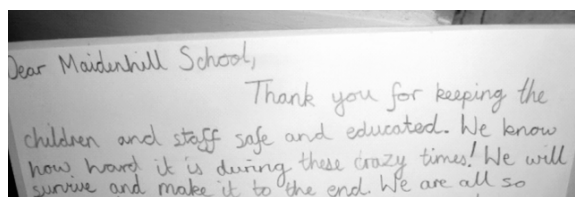 Dear Maidenhill School,
Thank you for keeping the
children and staff safe and educated. We know
how hard it is during these crazy times! We will
survive and make it to the end. We are all so